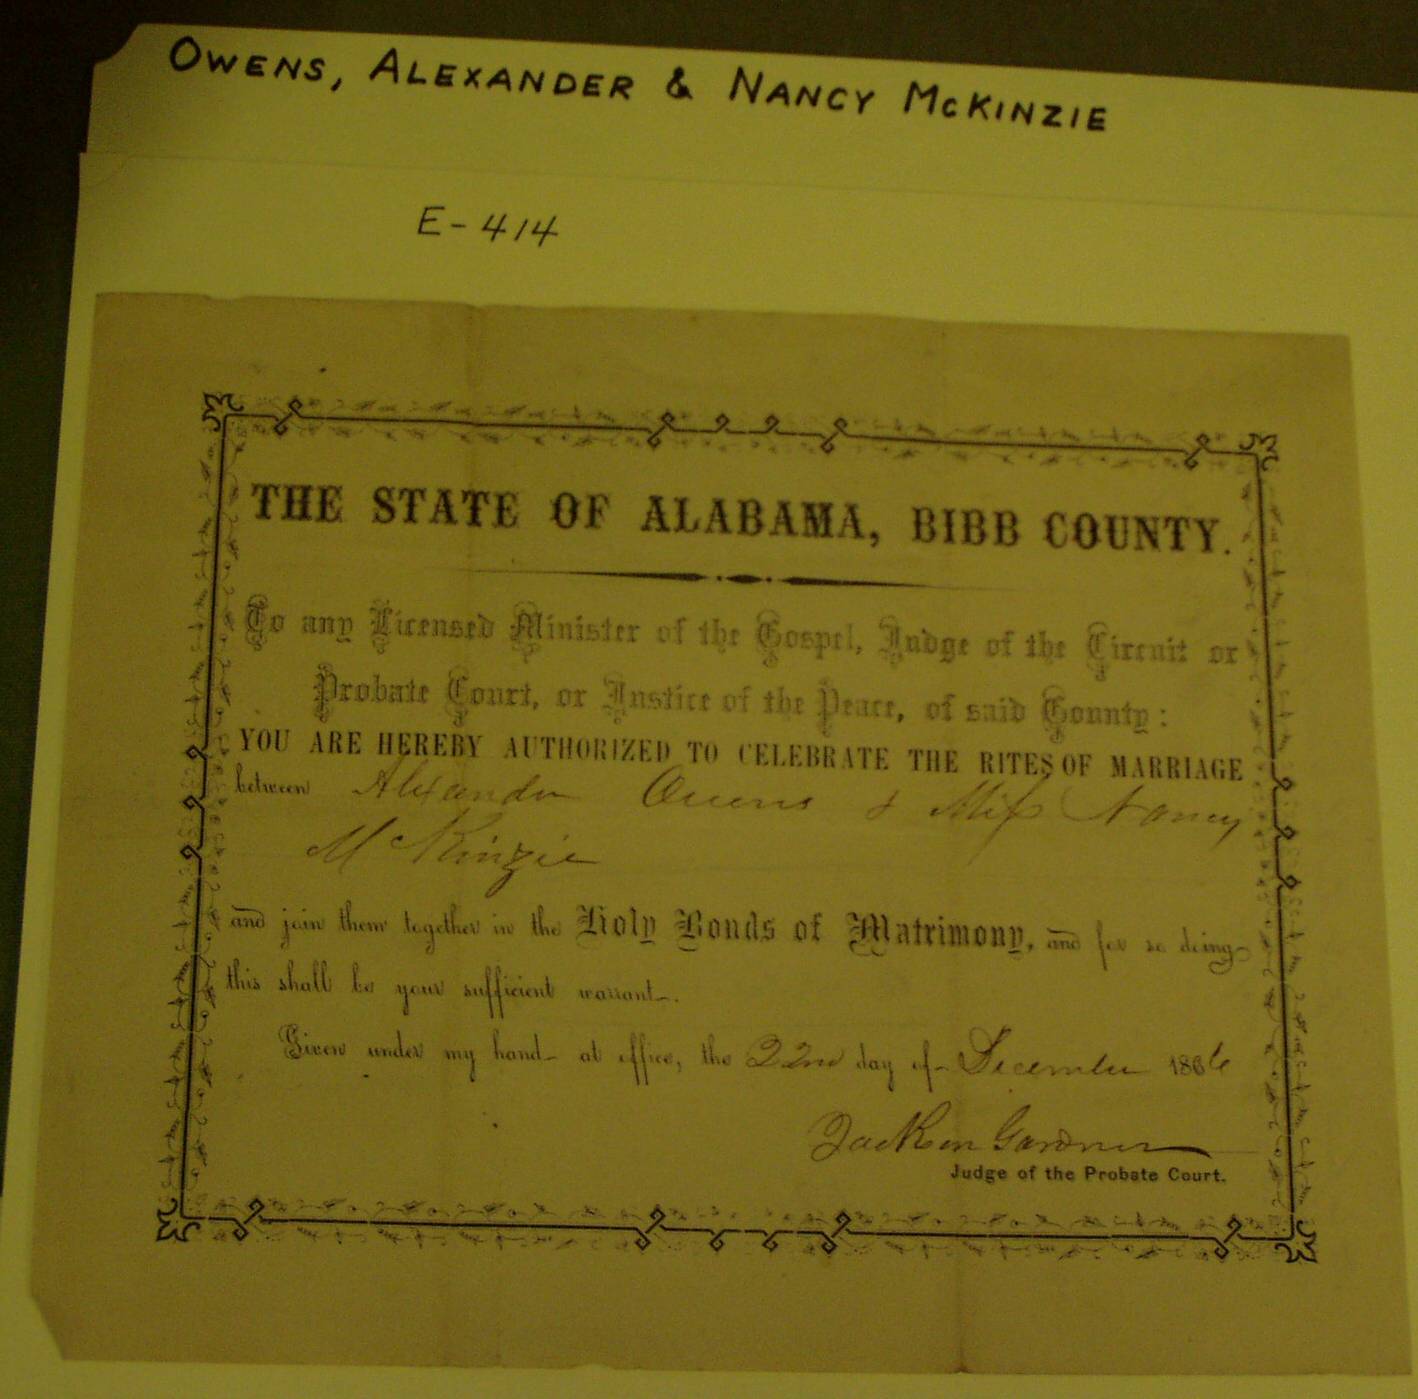 OWENS, ALEXANDER & NANCY MCKINZIE
E-414
THE STATE OF ALABAMA, BIBB COUNTY.
To any Licensed Minister of the Gospel, Judge of the Circuit or
Probate Court, or Justice of the Peace, of said County:
YOU ARE HEREBY AUTHORIZED TO CELEBRATE THE RITES OF MARRIAGE
between Alexander Owens & Miss Nancy
McKinzie
and join them together in the Holy Bonds of Matrimony, and for so doing
this shall be your sufficient warrant.
Given under my hand at office, the 22nd day of December 1866
Jackson Gardner
Judge of the Probate Court.